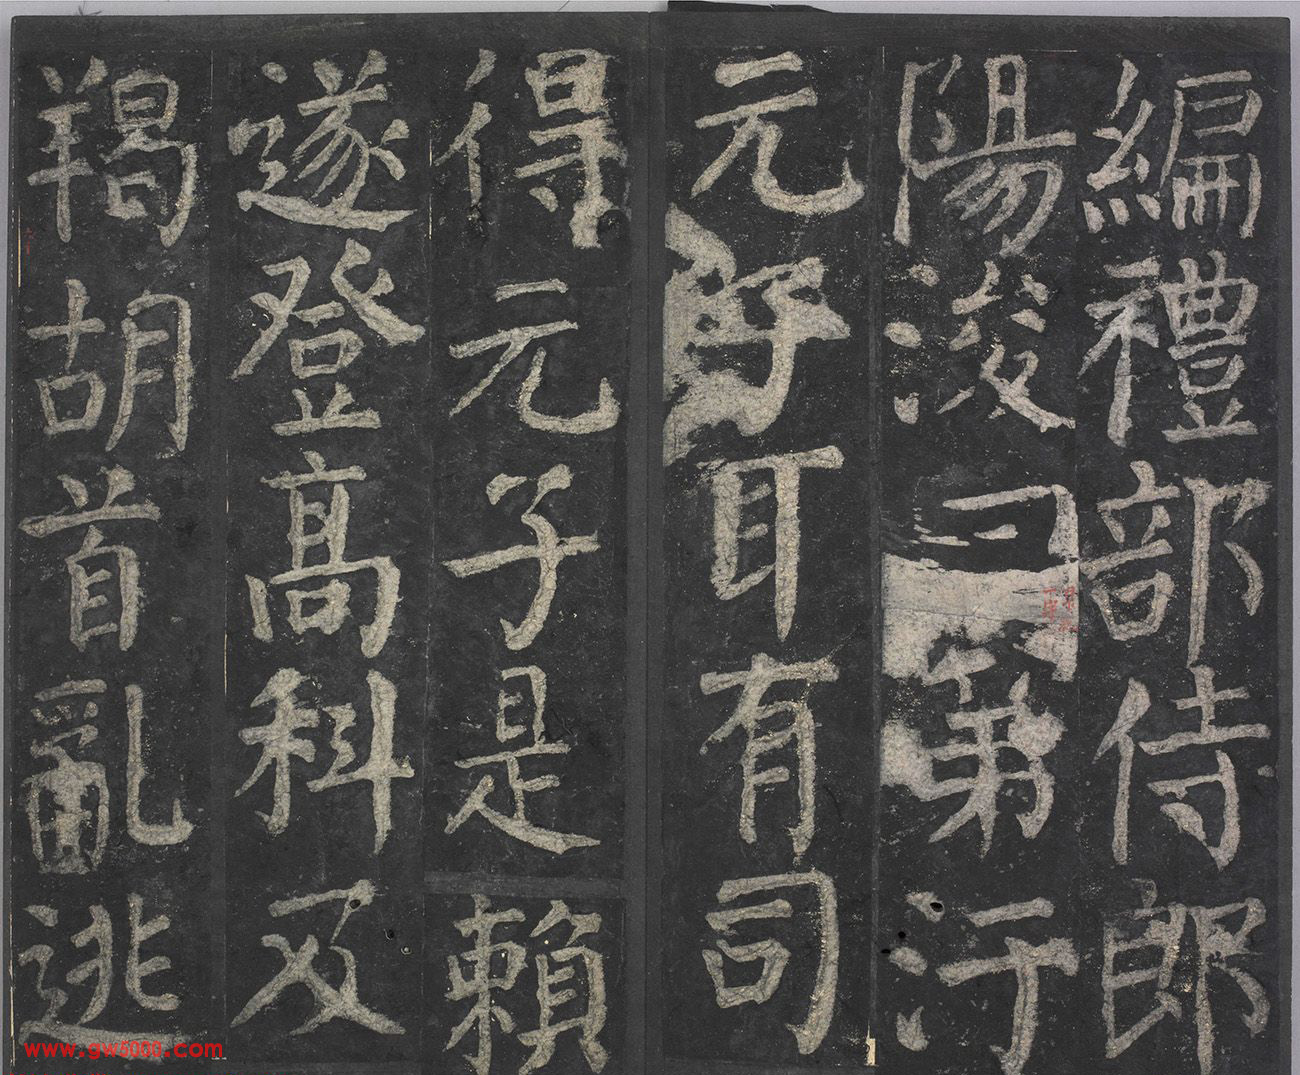 編禮部侍郎
陽浚曰第汙
元子耳有司
得元子是賴
遂登高科及
羯胡首亂逃
www.gw5000.com